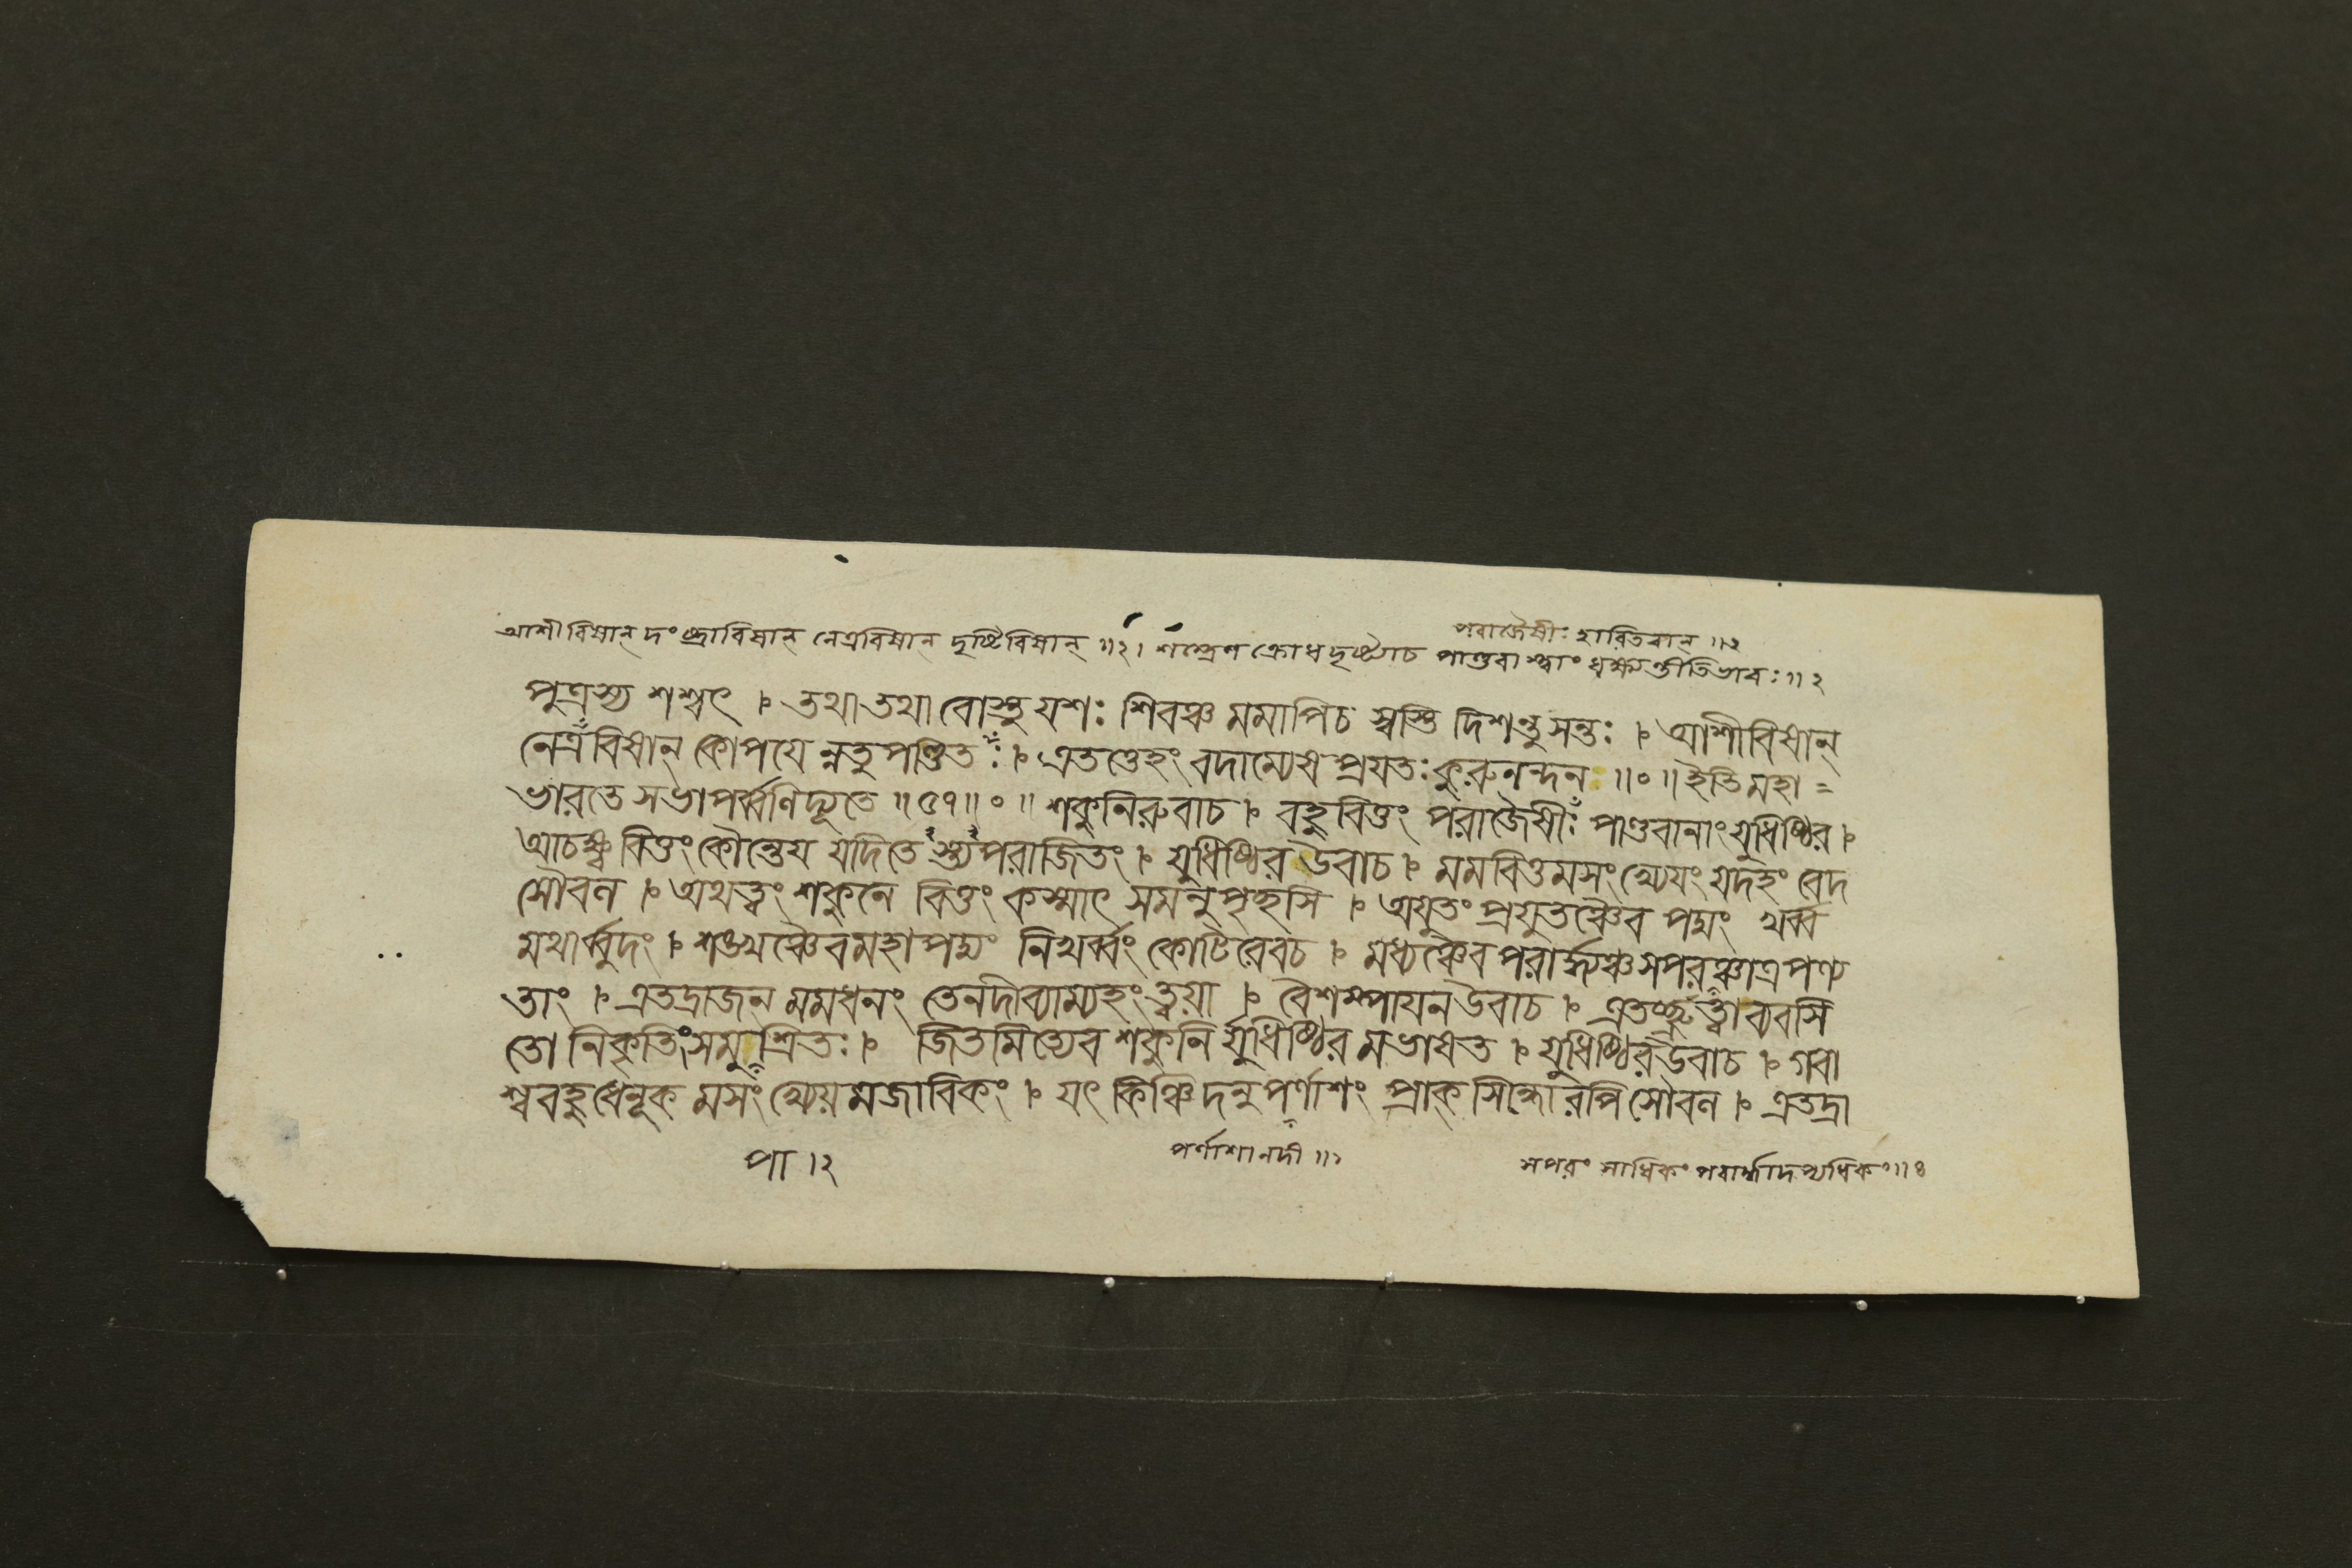 পরাজৈষীঃ হারিতবান্ ॥২
আশীবিষান্ দংষ্ট্রাবিষান্ নেত্রবিষান্ দৃষ্টিবিষান্ ॥২। শস্ত্রেণ ক্রোধদৃষ্ট্যাচ পাণ্ডবাস্ত্বাং ধক্ষ্যন্তীতিভাবঃ ॥২
পুত্রস্য শশ্বৎ । তথাতথা বোস্তু যশঃ শিবঞ্চ মমাপিচ স্বস্তি দিশন্তুসন্তঃ । আশীবিষান্
নেত্রবিষান্ কোপযে ন্নতু পণ্ডিতঃ । এতত্তেহং বদাম্যেষ প্রযতঃ কুরুনন্দন ॥০॥ ইতি মহা=
ভারতে সভাপর্ব্বণিদ্যূতে ॥৫৭॥০॥ শকুনিরুবাচ । বহুবিত্তং পরাজৈষীঃ পাণ্ডবানাং যুধিষ্ঠির ।
আচক্ষ্ব বিত্তং কৌন্তেয যদিতে স্ত্যপরাজিতং । যুধিষ্ঠির উবাচ । মমবিত্তমসংখ্যেযং যদহং বেদ
সৌবল । অথত্বং শকুনে বিত্তং কস্মাৎ সমনুপৃচ্ছসি । অযুতং প্রযুতঞ্চৈব পদ্মং খর্ব্ব
মথার্ব্বুদং । শঙ্খঞ্চৈবমহাপদ্মং নিখর্ব্বং কোটিরেবচ । মধ্যঞ্চৈব পরার্দ্ধঞ্চসপরঞ্চাত্রপণ্য
তাং । এতদ্রাজন্ মমধনং তেনদীব্যাম্যহংত্বযা । বৈশম্পাযন উবাচ । এতচ্ছ্রুত্বা ব্যবসি
তো নিকৃতিংসমুপাশ্রিতঃ । জিতমিত্যেব শকুনি র্যুধিষ্ঠির মভাষত । যুধিষ্ঠির উবাচ । গবা
শ্ববহুধেনূক মসংখ্যেয়মজাবিকং । যৎ কিঞ্চিদনু পর্ণাশং প্রাক্ সিন্ধোরপি সৌবল । এতদ্রা
পা ।২
পর্ণাশানদী ॥১
সপরং সাধিকং পরার্দ্ধাদপ্যধিকং ॥৪